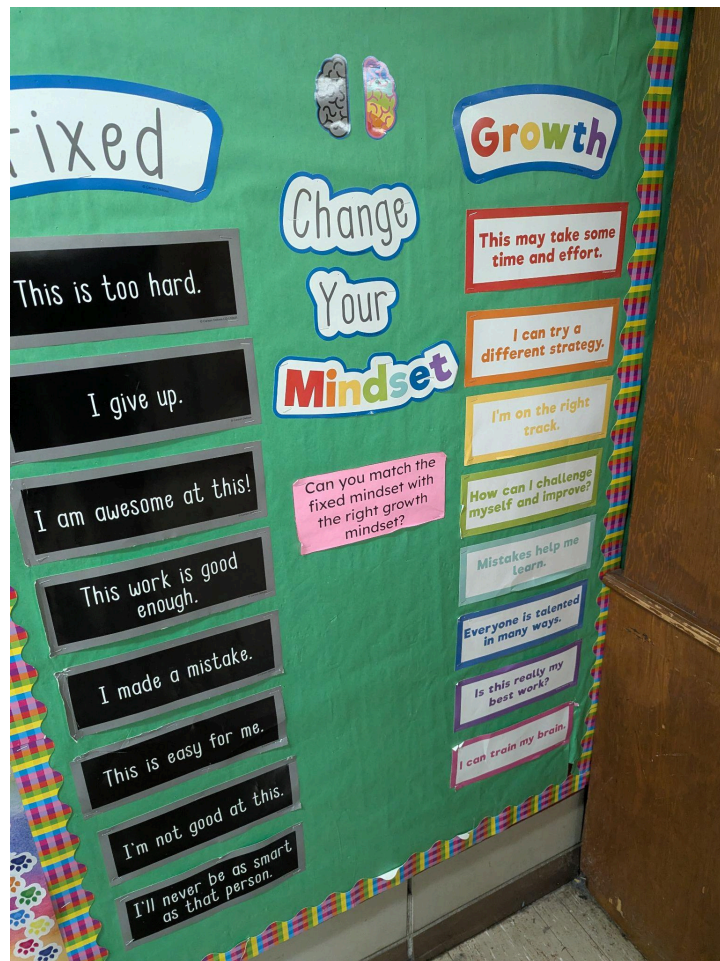 Fixed
This is too hard.
I give up.
I am awesome at this!
This work is good
enough.
I made a mistake.
This is easy for me.
I'm not good at this.
I'll never be as smart
as that person.
Change
Your
Mindset
Can you match the
fixed mindset with
the right growth
mindset?
Growth
This may take some
time and effort.
I can try a
different strategy.
I'm on the right
track.
How can I challenge
myself and improve?
Mistakes help me
learn.
Everyone is talented
in many ways.
Is this really my
best work?
I can train my brain.